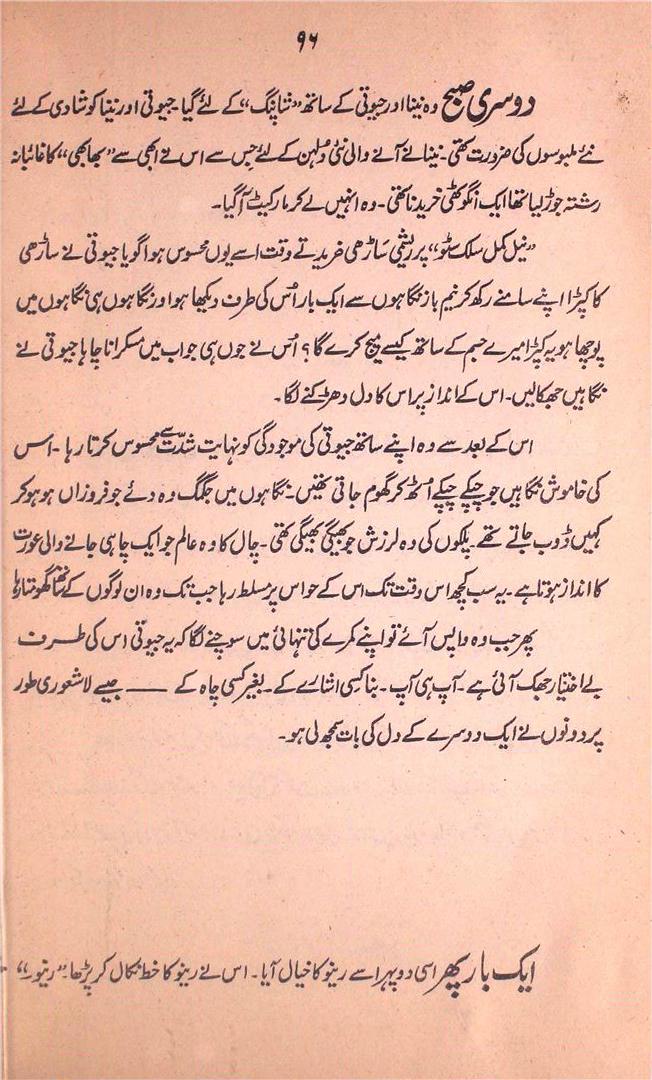 ۹۶
دوسری صبح وہ نینا اور جیوتی کے ساتھ ”شاپنگ“ کے لئے گیا۔ جیوتی اور نینا کو شادی کے لئے
نئے ملبوسوں کی ضرورت تھی۔ نینا نے آنے والی نئی دلہن کے لئے جس سے اس نے ابھی سے ”بھابھی“ کا غائبانہ
رشتہ جوڑ لیا تھا ایک انگوٹھی خریدنا تھی۔ وہ انہیں لے کر مارکیٹ آ گیا۔
”نیل کمل سلک سٹو“ پر ریشمی ساڑھی خریدتے وقت اسے یوں محسوس ہوا گویا جیوتی نے ساڑھی
کا کپڑا اپنے سامنے رکھ کر نیم باز نگاہوں سے ایک بار اُس کی طرف دیکھا ہو اور نگاہوں ہی نگاہوں میں
پوچھا ہو یہ کپڑا میرے جسم کے ساتھ کیسے میچ کرے گا؟ اُس نے جوں ہی جواب میں مسکرانا چاہا جیوتی نے
نگاہیں جھکالیں۔ اس کے انداز پر اس کا دل دھڑکنے لگا۔
اس کے بعد سے وہ اپنے ساتھ جیوتی کی موجودگی کو نہایت شدّت سے محسوس کرتا رہا۔ اس
کی خاموش نگاہیں جو چپکے چپکے اُٹھ کر گھوم جاتی تھیں۔ نگاہوں میں جگمگ وہ دئے جو فروزاں ہو ہو کر
کہیں ڈوب جاتے تھے۔ پلکوں کی وہ لرزش جو بھیگی بھیگی تھی۔ چال کا وہ عالم جو ایک چاہی جانے والی عورت
کا انداز ہوتا ہے۔ یہ سب کچھ اس وقت تک اس کے حواس پر مسلط رہا جب تک وہ ان لوگوں کے ساتھ گھومتا رہا
پھر جب وہ واپس آئے تو اپنے کمرے کی تنہائی میں سوچنے لگا کہ یہ جیوتی اس کی طرف
بے اختیار جھک آئی ہے۔ آپ ہی آپ۔ بنا کسی اشارے کے۔ بغیر کسی چاہ کے —— جیسے لاشعوری طور
پر دونوں نے ایک دوسرے کے دل کی بات سمجھ لی ہو۔
ایک بار پھر اسی دوپہر اسے رینو کا خیال آیا۔ اس نے رینو کا خط نکال کر پڑھا۔ ”رینو۔“